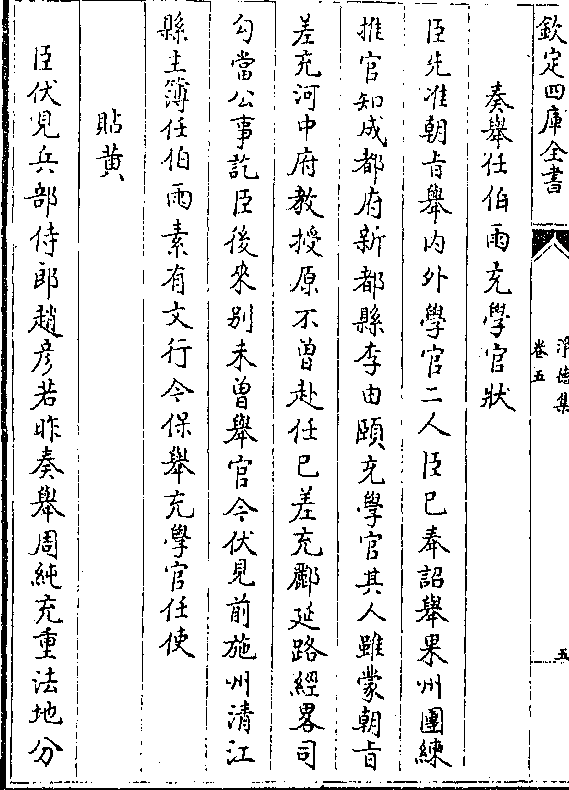 欽定四庫全書
淨德集
卷五
五
奏舉任伯雨充學官狀
臣先准朝旨舉內外學官二人臣已奉詔舉果州團練
推官知成都府新都縣李由頤充學官其人雖蒙朝旨
差充河中府教授原不曾赴任已差充鄜延路經畧司
勾當公事訖臣後來別未曾舉官今伏見前施州清江
縣主簿任伯雨素有文行令保舉充學官任使
貼黃
臣伏見兵部侍郎趙彥若昨奏舉周純充重法地分